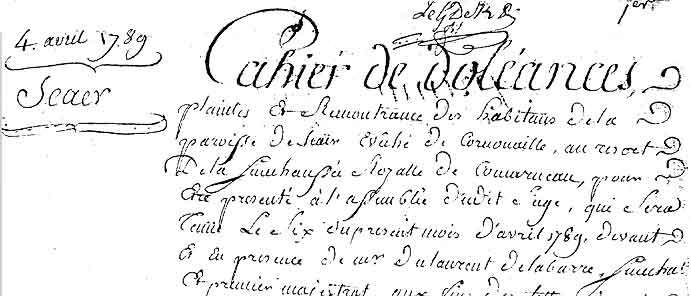 4. avril 1789
Scaer
Cahier de doléances,
plaintes Et Remontrance des habitans de la
paroisse de Scäer Evêché de Cornouaille, au ressort
De la Senechaussée Royalle de Concarneau, pour
Etre presenté à l'assemblée dudit Siege, qui Sera
Tenue Le Six du present mois d'avril 1789. devant
Et en presence de mr dulaurent delabarre, Senechal
Et premier magistrat aux fins des